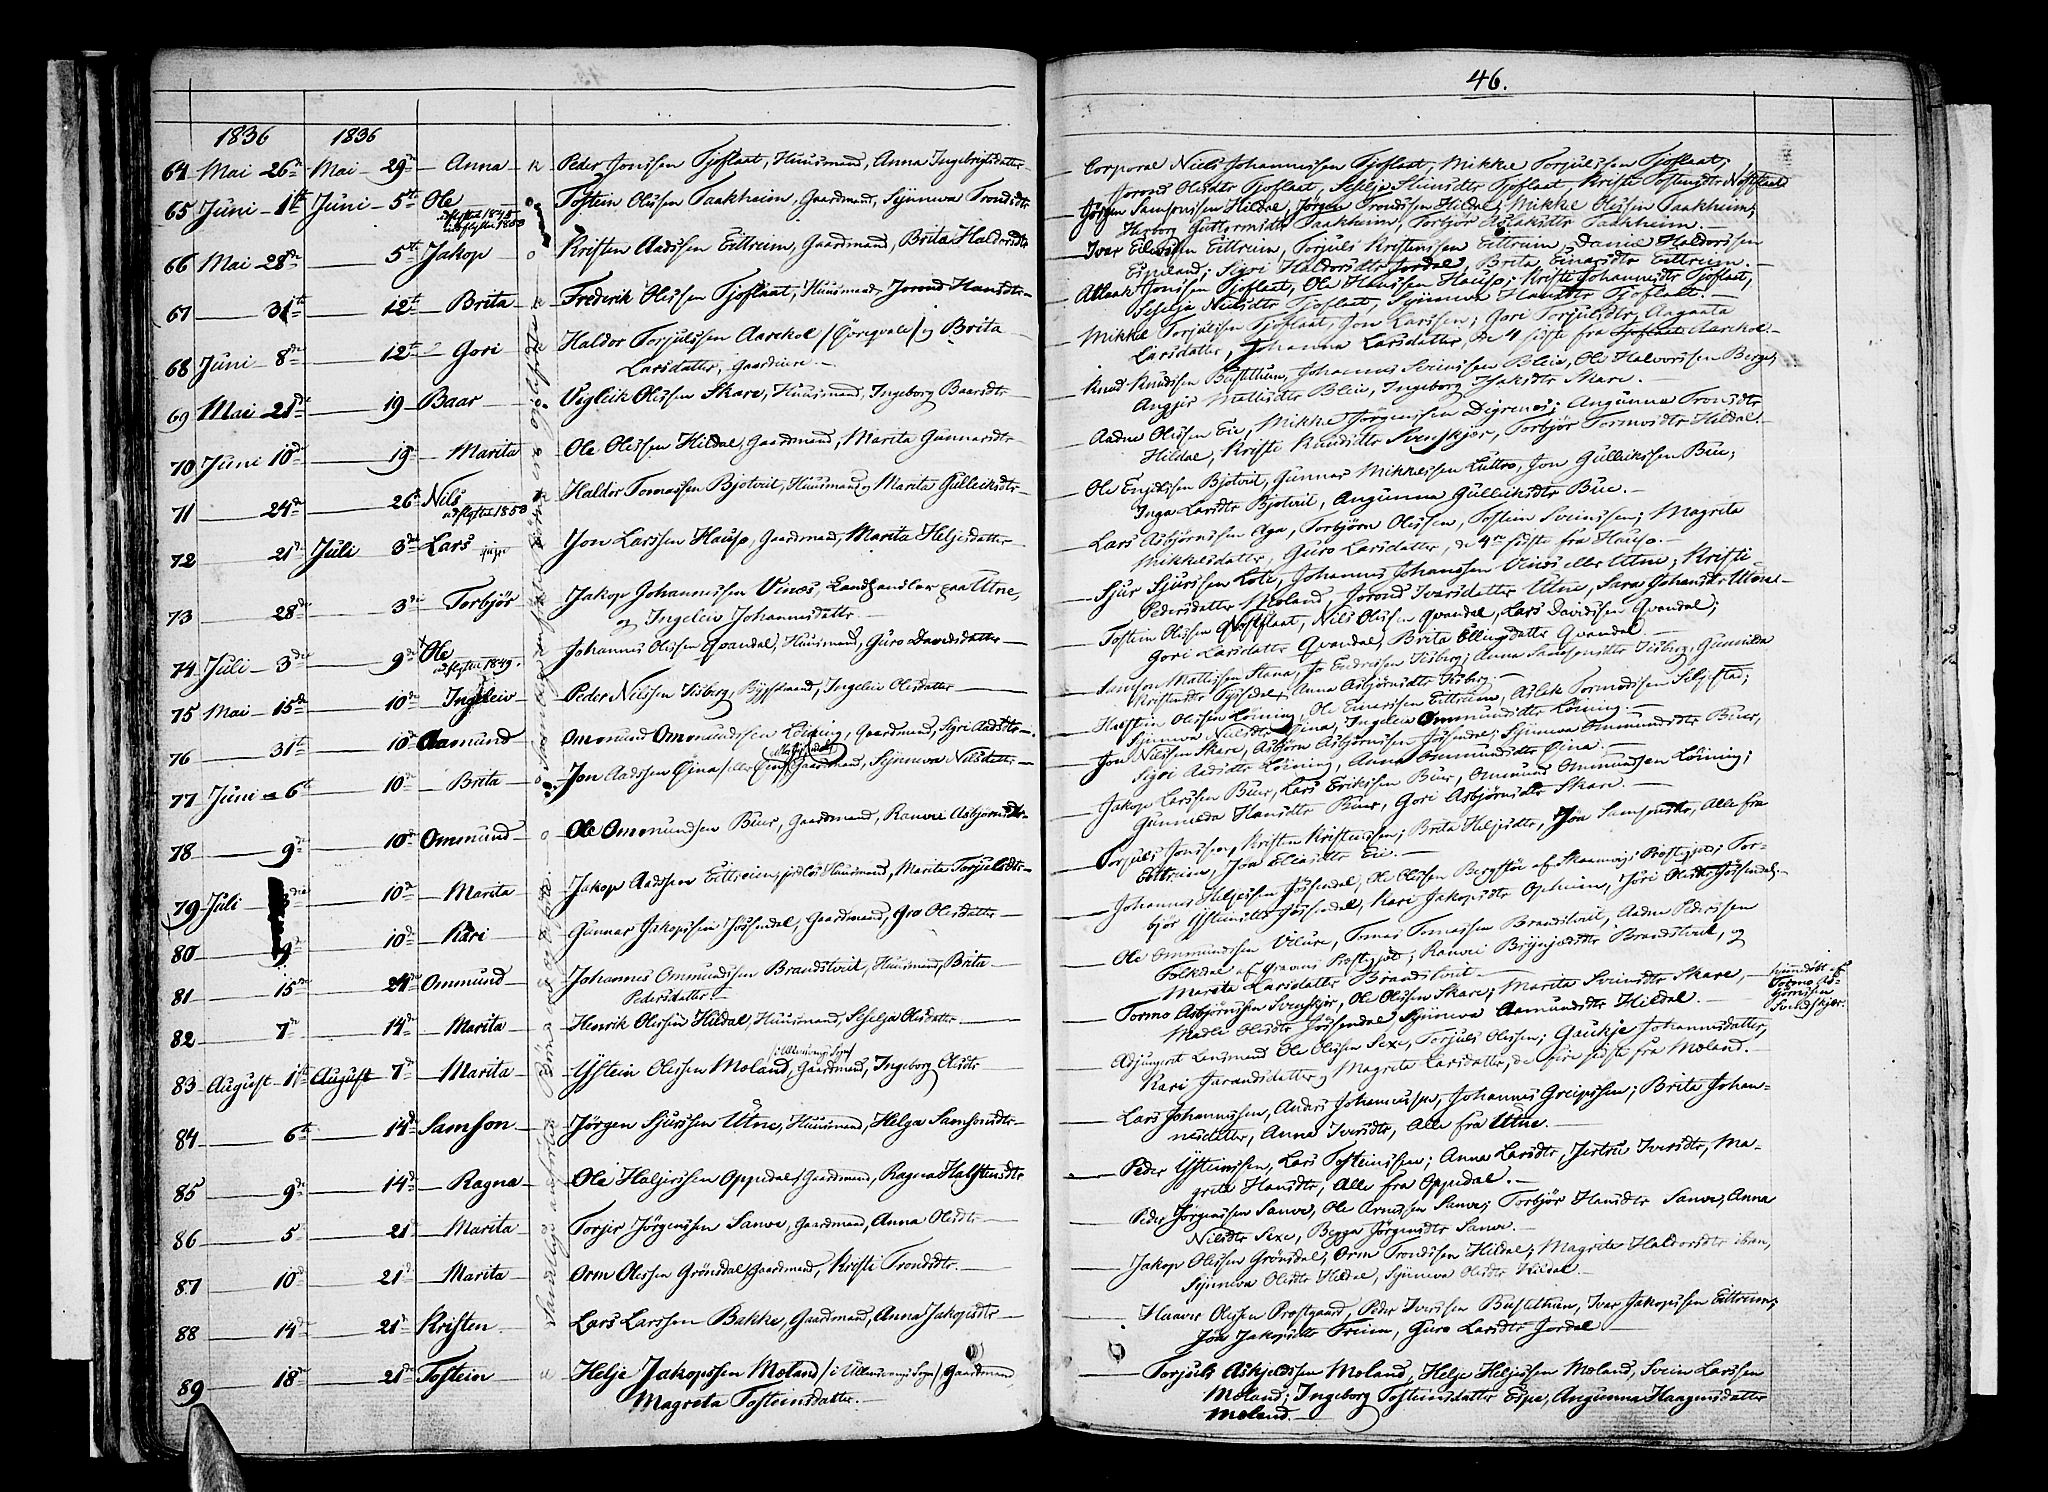 46.
1836 1836
64 Mai 26de Mai 29de Anna Peder Jonssen Tjoflaat, Huusmand, Anna Ingebrigtsdatter
65 Juni 1te Juni 5te Ole Tostein Olssen Taakheim, Gaardmand, Synneva Trondsdtr
66 Mai 28de 5te Jakop Kristen Aadssen Eittreim, Gaardmand, Brita Haldorsdtr
67 31te 12te Brita Frederik Olssen Tjoflaat, Huusmand, Jorond Hansdtr
68 Juni 8de 12te Gori Haldor Torjulssen Aarekol og Brita
Larsdatter, Gaardeiere
69 Mai 21de 19 Baar Vigleik Olssen Skare, Huusmand, Ingeborg Baarsdtr
70 Juni 10de 19 Marita Ole Olssen Hildal, Gaardmand, Marita Gunnarsdtr
71 24de 26te Nils Haldor Tomassen Bjotveit, Huusmand, Marita Gulleiksdtr
udflyttet 1850
72 21de Juli 3die Lars Jon Larssen Hauso, Gaardmand, Marita Heljesdatter
73 28de 3die Torbjör Jakop Johannessen Vinæs, Landhandler paa Utne,
og Ingeleiv Johannesdatter
74 Juli 3die 9de Ole Johannes Olssen Qvandal, Huusmand, Guro Davidsdatter
udflyttet 1849.
75 Mai 15de 10de Ingeleiv Peder Nilssen Tisberg, Bygselmand, Ingeleiv Olsdatter
76 31te 10de Aamund Omмund Ommundssen Löining, Gaardmand, Sigri Aadsdtr
77 Juni 6te 10de Brita Jon Aadssen Qina, Gaardmand, Synneva Nilsdatter
78 9de 10de Ommund Ole Ommundssen Buer, Gaardmand, Ranvei Asbjörnsdtr
79 Juli 10de Marita Jakop Aadssen Eittreim, jordlös Huusmand, Marita Torjulsdtr
80 9de 10de Kari Gunnar Jakopssen Jössendal, Gaardmand, Gro Olsdatter
81 15de 24de Ommund Johannes Ommundssen Brandstveit, Huusmand, Brita
Pedersdatter
82 7de 14de Marita Henrik Olssen Hildal, Huusmand, Selja Olsdatter
83 August 1te August 7de Marita Ystein Olssen Moland, Gaardmand, Ingeborg Olsdtr
84 6te 14de Samson Jörgen Sjurssen Utne, Huusmand, Helga Samsonsdtr
85 9de 14de Ragna Ole Heljessen Oppedal, Gaardmand, Ragna Halstensdtr
86 5 21de Marita Torjer Jörgenssen Sanve, Gaardmand, Anna Olsdtr
87 10de 21de Marita Orm Olssen Grönsdal, Gaardmand, Kristi Trondsdtr.
88 14de 21de Kristen Lars Larssen Bakke, Gaardmand, Anna Jakopsdtr
89 18de 21de Tostein Helje Jakopssen Moland /i Ullensvangs Sogn/, Gaardmand,
Magreta Tosteinsdatter.
Corporal Niels Johannessen Tjoflaat, Mikkel Torjulssen Tjoflaat,
Jorond Olsdtr Tjoflaat, Selja Tjoflaat, Kristi Tostensdtr
Jörgen Samsonssen Hildal, Jörgen Trondssen Hildal, Mikkel Olssen Taakheim,
Herborg Guttormsdtr Taakheim, Torbjör Aslaksdtr Taakheim.
Ivar Eilevssen Eittreim, Torjuls Kristenssen Eittreim, Daniel Haldorssen
Espeland; Sigri Haldorsdtr Jordal, Brita Einarsdtr Eittreim.
Aslaak Jonssen Tjoflaat, Ole Hanssen Hauso; Kristi Johannesdtr Tjoflaat,
Selja Nielsdtr Tjoflaat, Synneva Hansdtr Tjoflaat.
Mikkel Torjulssen Tjoflaat, Jon Larssen; Gori Torjulsdtr, Aagaata
Larsdatter, Johanna Larsdatter, de 4 siste fra Aarekol.
Knud Knudssen Bustethun, Johannes Sveinssen Bleie, Ole Halvorssen Berge;
Angjer Bleie, Ingeborg Isaksdtr Skare.
Aadne Olssen Eie, Mikkel Jörgenssen Digrenes; Angunna Tronsdtr
Hildal, Kristi Knudsdtr Svendskjær, Torbjör Tormosdtr Hildal.
Ole Bjotveit, Gunnar Mikkelssen Lutro, Jon Gulleikssen Bue;
Inga Larsdtr Bjotveit, Angunna Gulleiksdtr Bue.
Lars Asbjörnssen Aga, Torbjörn Olssen, Tostein Sveinssen; Magrita
Mikkelsdatter, Guro Larsdatter, de 4re siste fra Hauso.
Sjur Sjurssen Lote, Johannes Johanssen Vinæs eller Utne; Kristi
Pedersdatter Moland, Jorond Ivarsdatter Utne, Sara Johansdtr Utne
Tostein Olssen, Nils Olssen Qvandal, Lars Davidssen Qvandal;
Gori Larsdatter Qvandal, Brita Ellingsdatter Qvandal
Samson Mattissen Stana, Jo Endressen Tisberg; Anna Samsonsdtr Tisberg, Gunnilda
Kristensdtr Tyssedal, Anna Asbjörnsdtr Tisberg.
Halstein Olssen Löining, Ole Einarssen Eittreim, Aslak Tormodssen Seljestad;
Synneva Nielsdtr Qina, Ingeleiv Ommundsdtr Löining.
Jon Nilssen Skare, Asbjörn Asbjörnssen Jössendal; Synneva Ommundsdtr Buer,
Sigri Aadsdtr Löining, Anna Ommundsdtr Qina.
Jakop Larssen Buer, Lars Erikssen Buer, Ommund Ommundssen Löining;
Gunnilda Hansdtr Buer, Gori Asbjörnsdtr Skare.
Torjuls Jonssen, Kristen Kristenssen; Brita Heljesdtr, Jöa Samsonsdtr, Alle fra
Eittreim, Jöa Eliasdtr Eie.
Johannes Heljessen Jössendal, Ole Olssen Bergstö af Skaanevigs Præstgjeld; Tor-
björ Ysteinsdtr Jössendal, Kari Jakopsdtr Opheim, Jöri Olsdtr Jössendal
Ole Ommundssen Vilure, Tomas Tomassen Brandstveit, Aadne Pederssen
Folkdal af Gravens Præstgjeld; Ranvei Brynjelsdtr Brandstveit, og
Marita Larsdatter Brandstveit.
Tormo Asbjörnssen Svendskjær, Ole Olssen Skare; Marita Sveinsdtr Skare,
Madli Olsdtr Jössendal, Synneva Aamundsdtr Hildal.
hjemmedöbt af
Tormo As-
björnssen
Svendskjær.
Adjungeret Lensmand Ole Olssen Sexe, Torjuls Olssen; Gaukje Johannesdatter,
Kari Jarandsdatter, Magreta Larsdatter, de fire sidste fra Moland.
Lars Johannessen, Anders Johannessen, Johannes Greipssen; Brita Johan-
nesdatter, Anna Iversdtr, Alle fra Utne.
Peder Ysteinssen, Lars Tosteinssen; Anna Larsdtr, Jertru Iversdtr, Ma-
grete Hansdtr, Alle fra Oppedal.
Peder Jörgenssen Sanve, Ole Arnessen Sanve; Torbjör Hansdtr Sanve, Anna
Nilsdtr Sexe, Jörgensdtr Sanve.
Jakop Olssen Grönsdal; Orm Trondssen Hildal; Magrite Haldorsdtr iban,
Synneva Olsdtr Hildal, Synneva Olsdtr Hildal
Haaver Olssen Præstgaard, Peder Iverssen Bustethun, Ivar Jakopssen Eittreim;
Jöa Jakopsdtr Freim, Guro Larsdtr Jordal
Torjuls Askjeldssen Moland, Helje Heljessen Moland, Svein Larssen
Moland; Ingeborg Tosteinsdatter Espe, Angunna Haagensdatter
Moland.